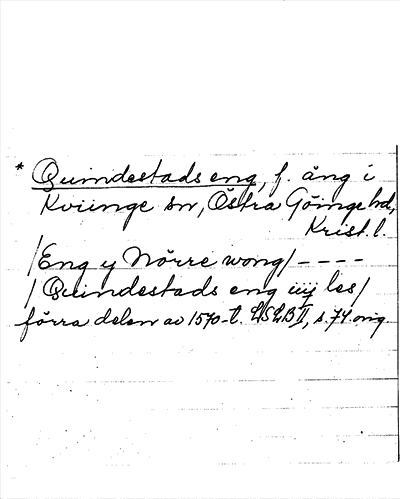 * Quindestads eng, f. äng i
Kviinge sn, Östra Göinge hd,
Krist. l.
/Eng y Nörre wong/ ----
/ Quindestads eng iiij les/
förra delen av 1570-t. LSLB II, s. 74 orig.